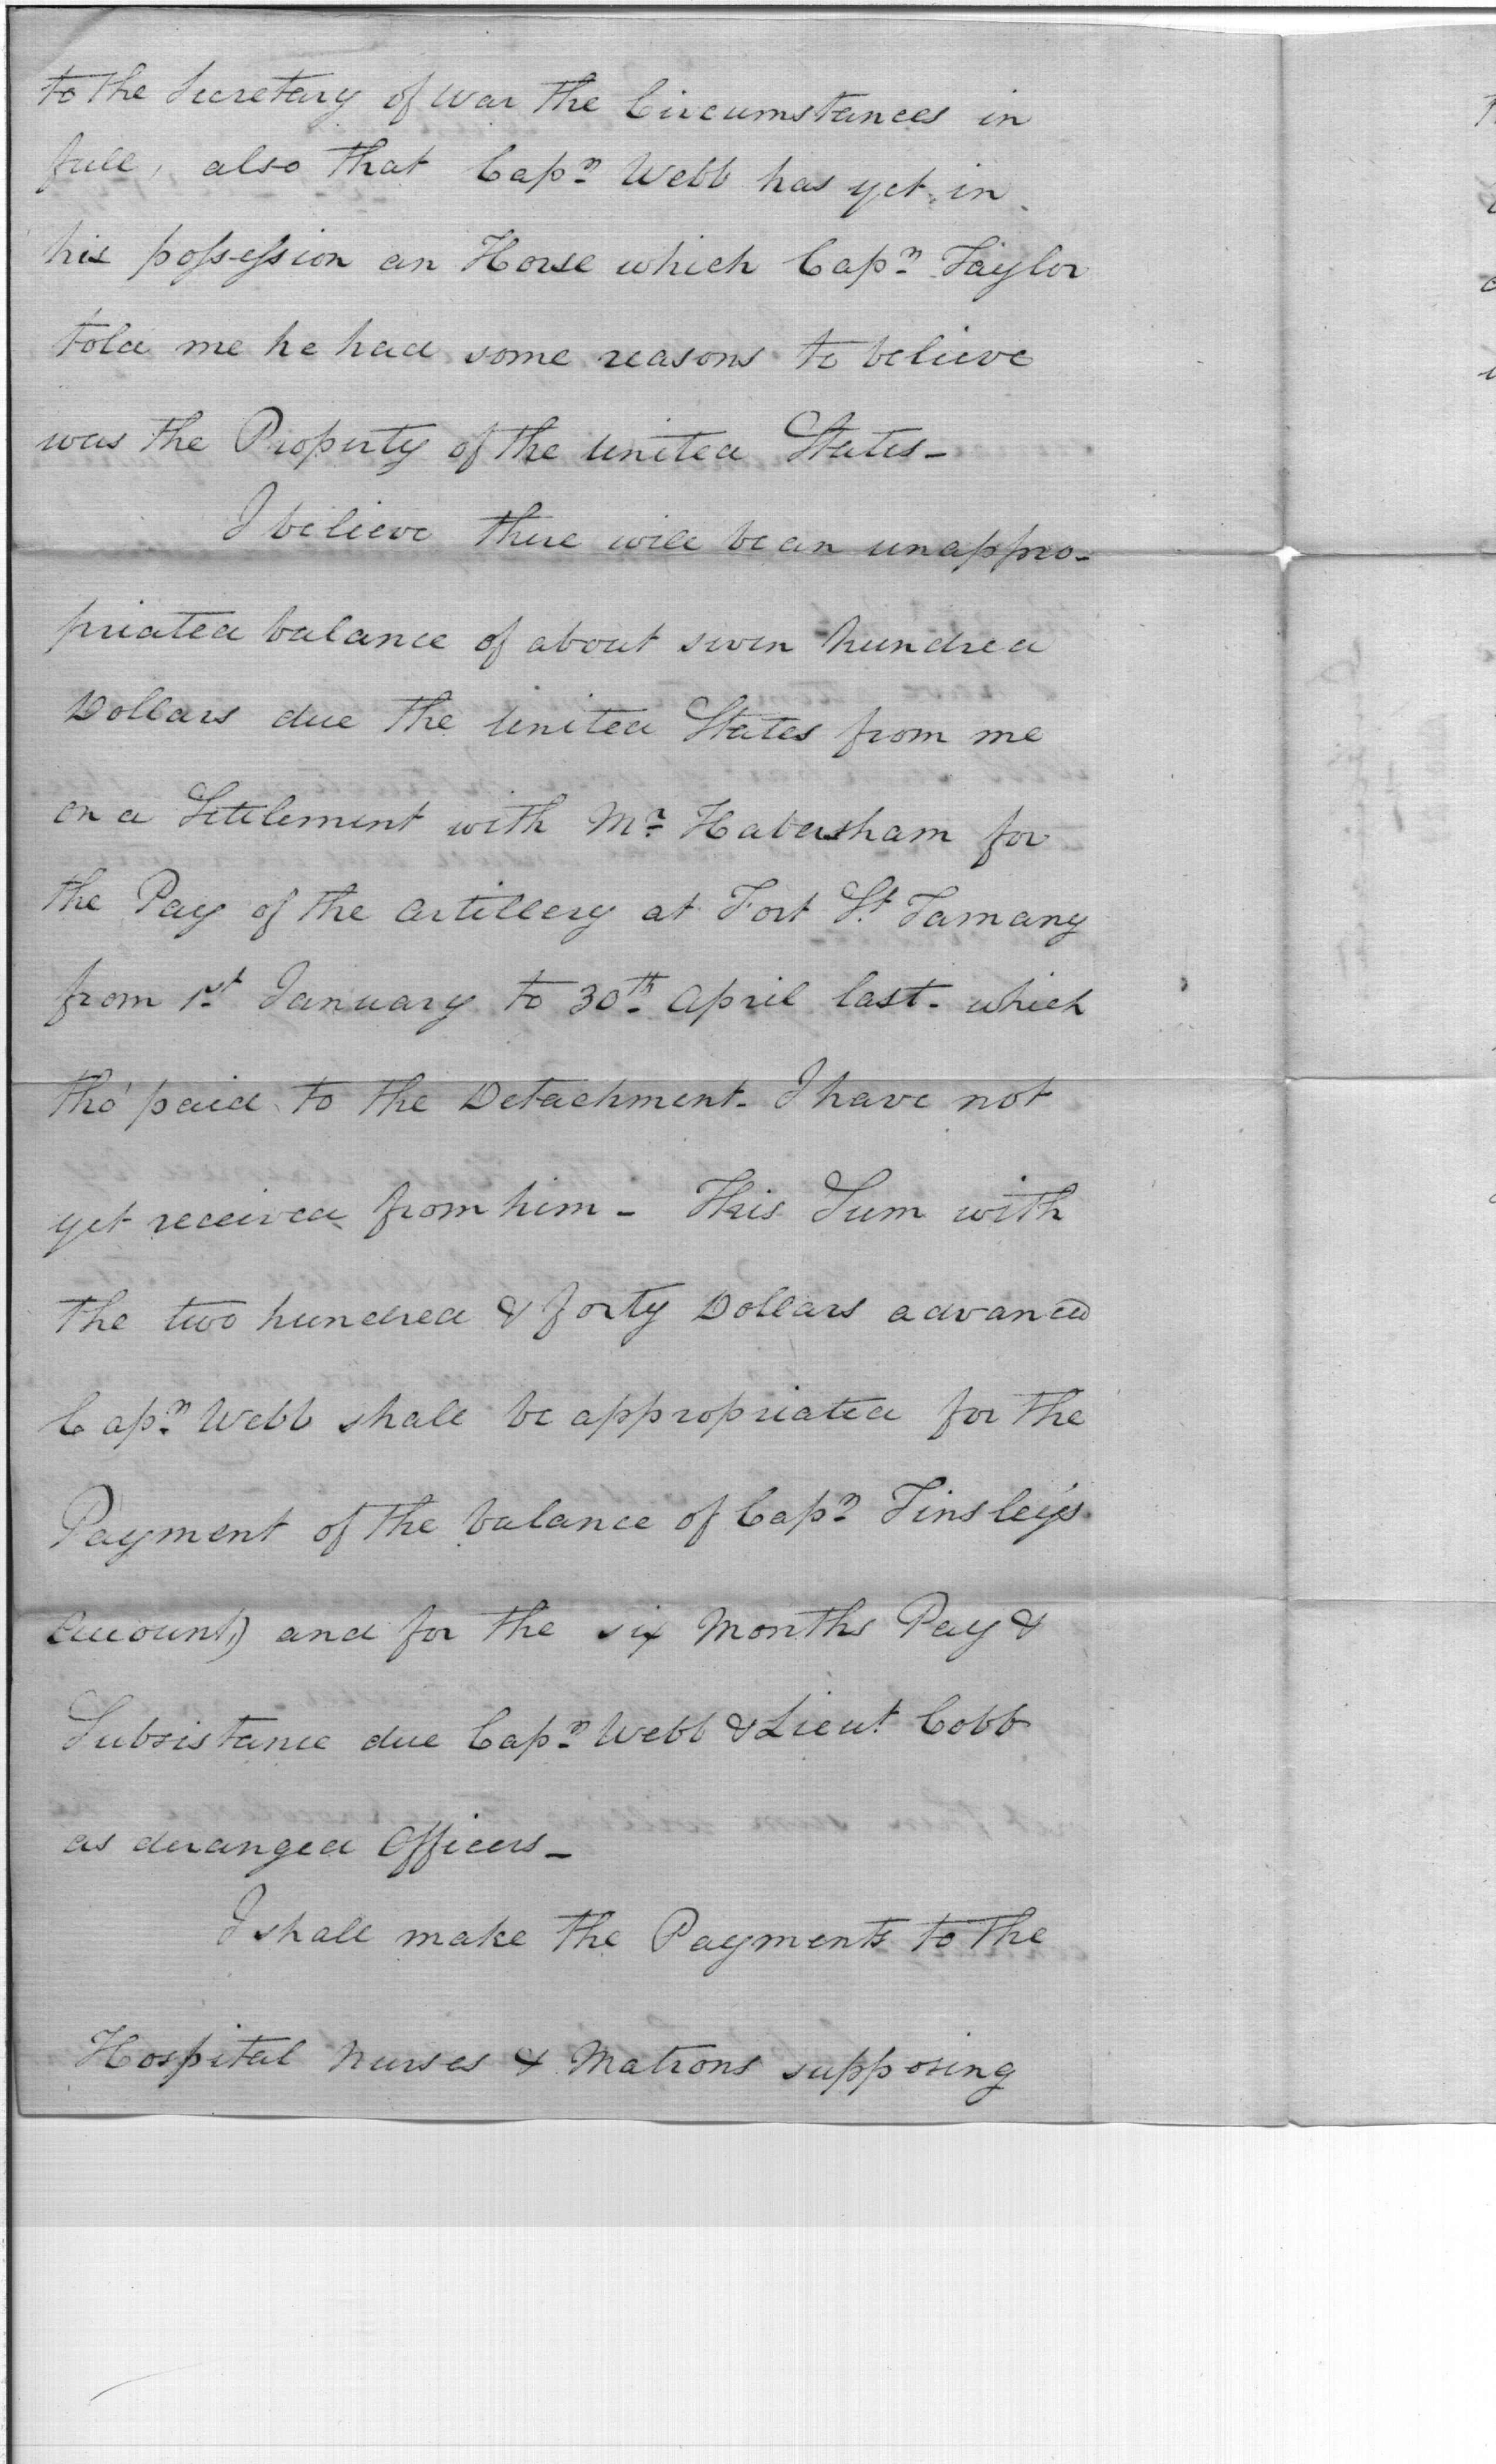 to the Secretary of War the Circumstances in
full, also that Capn Webb has yet in
his possession an Horse which Capn Taylor
told me he had some reasons to believe
was the Property of the United States-
I believe there will be an unappro-
priated balance of about seven hundred
Dollars due the United States from me
on a Settlement with Mr Habersham for
the Pay of the Artillery at Fort St Tamany
from 1st January to 30th April last- which
tho' paid to the Detachment- I have not
yet received from him- This Sum with
the two hundred & forty Dollars advanced
Capn Webb shall be appropriated for the
Payment of the balance of Capn Tinsley's
account,) and for the six Months Pay &
Subsistance due Capn Webb & Lieut Cobb
as deranged Officers-
I shall make the Payments to the
Hospital Nurses & Matrons supposing